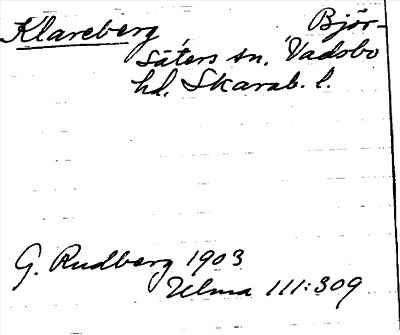 Klareberg, Björ-
säters sn. Vadsbo
hd. Skarab. l.
G. Rudberg 1903
Ulma 111:309